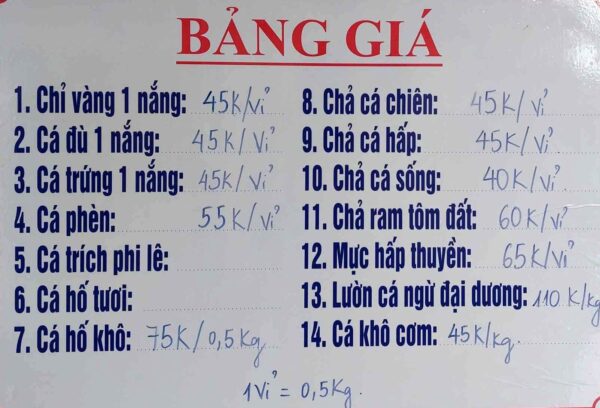 BẢNG GIÁ
1. Chỉ vàng 1 nắng: 45K/vỉ
2. Cá đù 1 nắng: 45K/vỉ
3. Cá trứng 1 nắng: 45K/vỉ
4. Cá phèn: 55K/vỉ
5. Cá trích phi lê:
6. Cá hố tươi:
7. Cá hố khô: 75K/0,5kg
8. Chả cá chiên: 45K/vỉ
9. Chả cá hấp: 45K/vỉ
10. Chả cá sống: 40K/vỉ.
11. Chả ram tôm đất: 60K/vỉ
12. Mực hấp thuyền: 65K/vỉ
13. Lườn cá ngừ đại dương: 110K/kg
14. Cá khô cơm: 45K/kg.
1vỉ = 0,5kg.